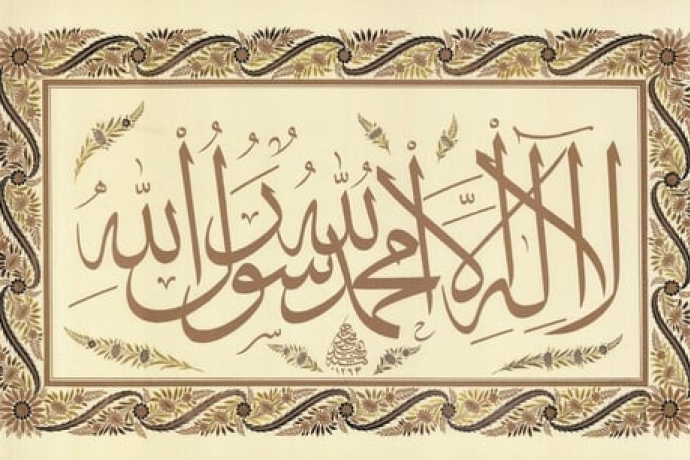 لا إله إلا الله محمد رسول الله
١٢٩٣